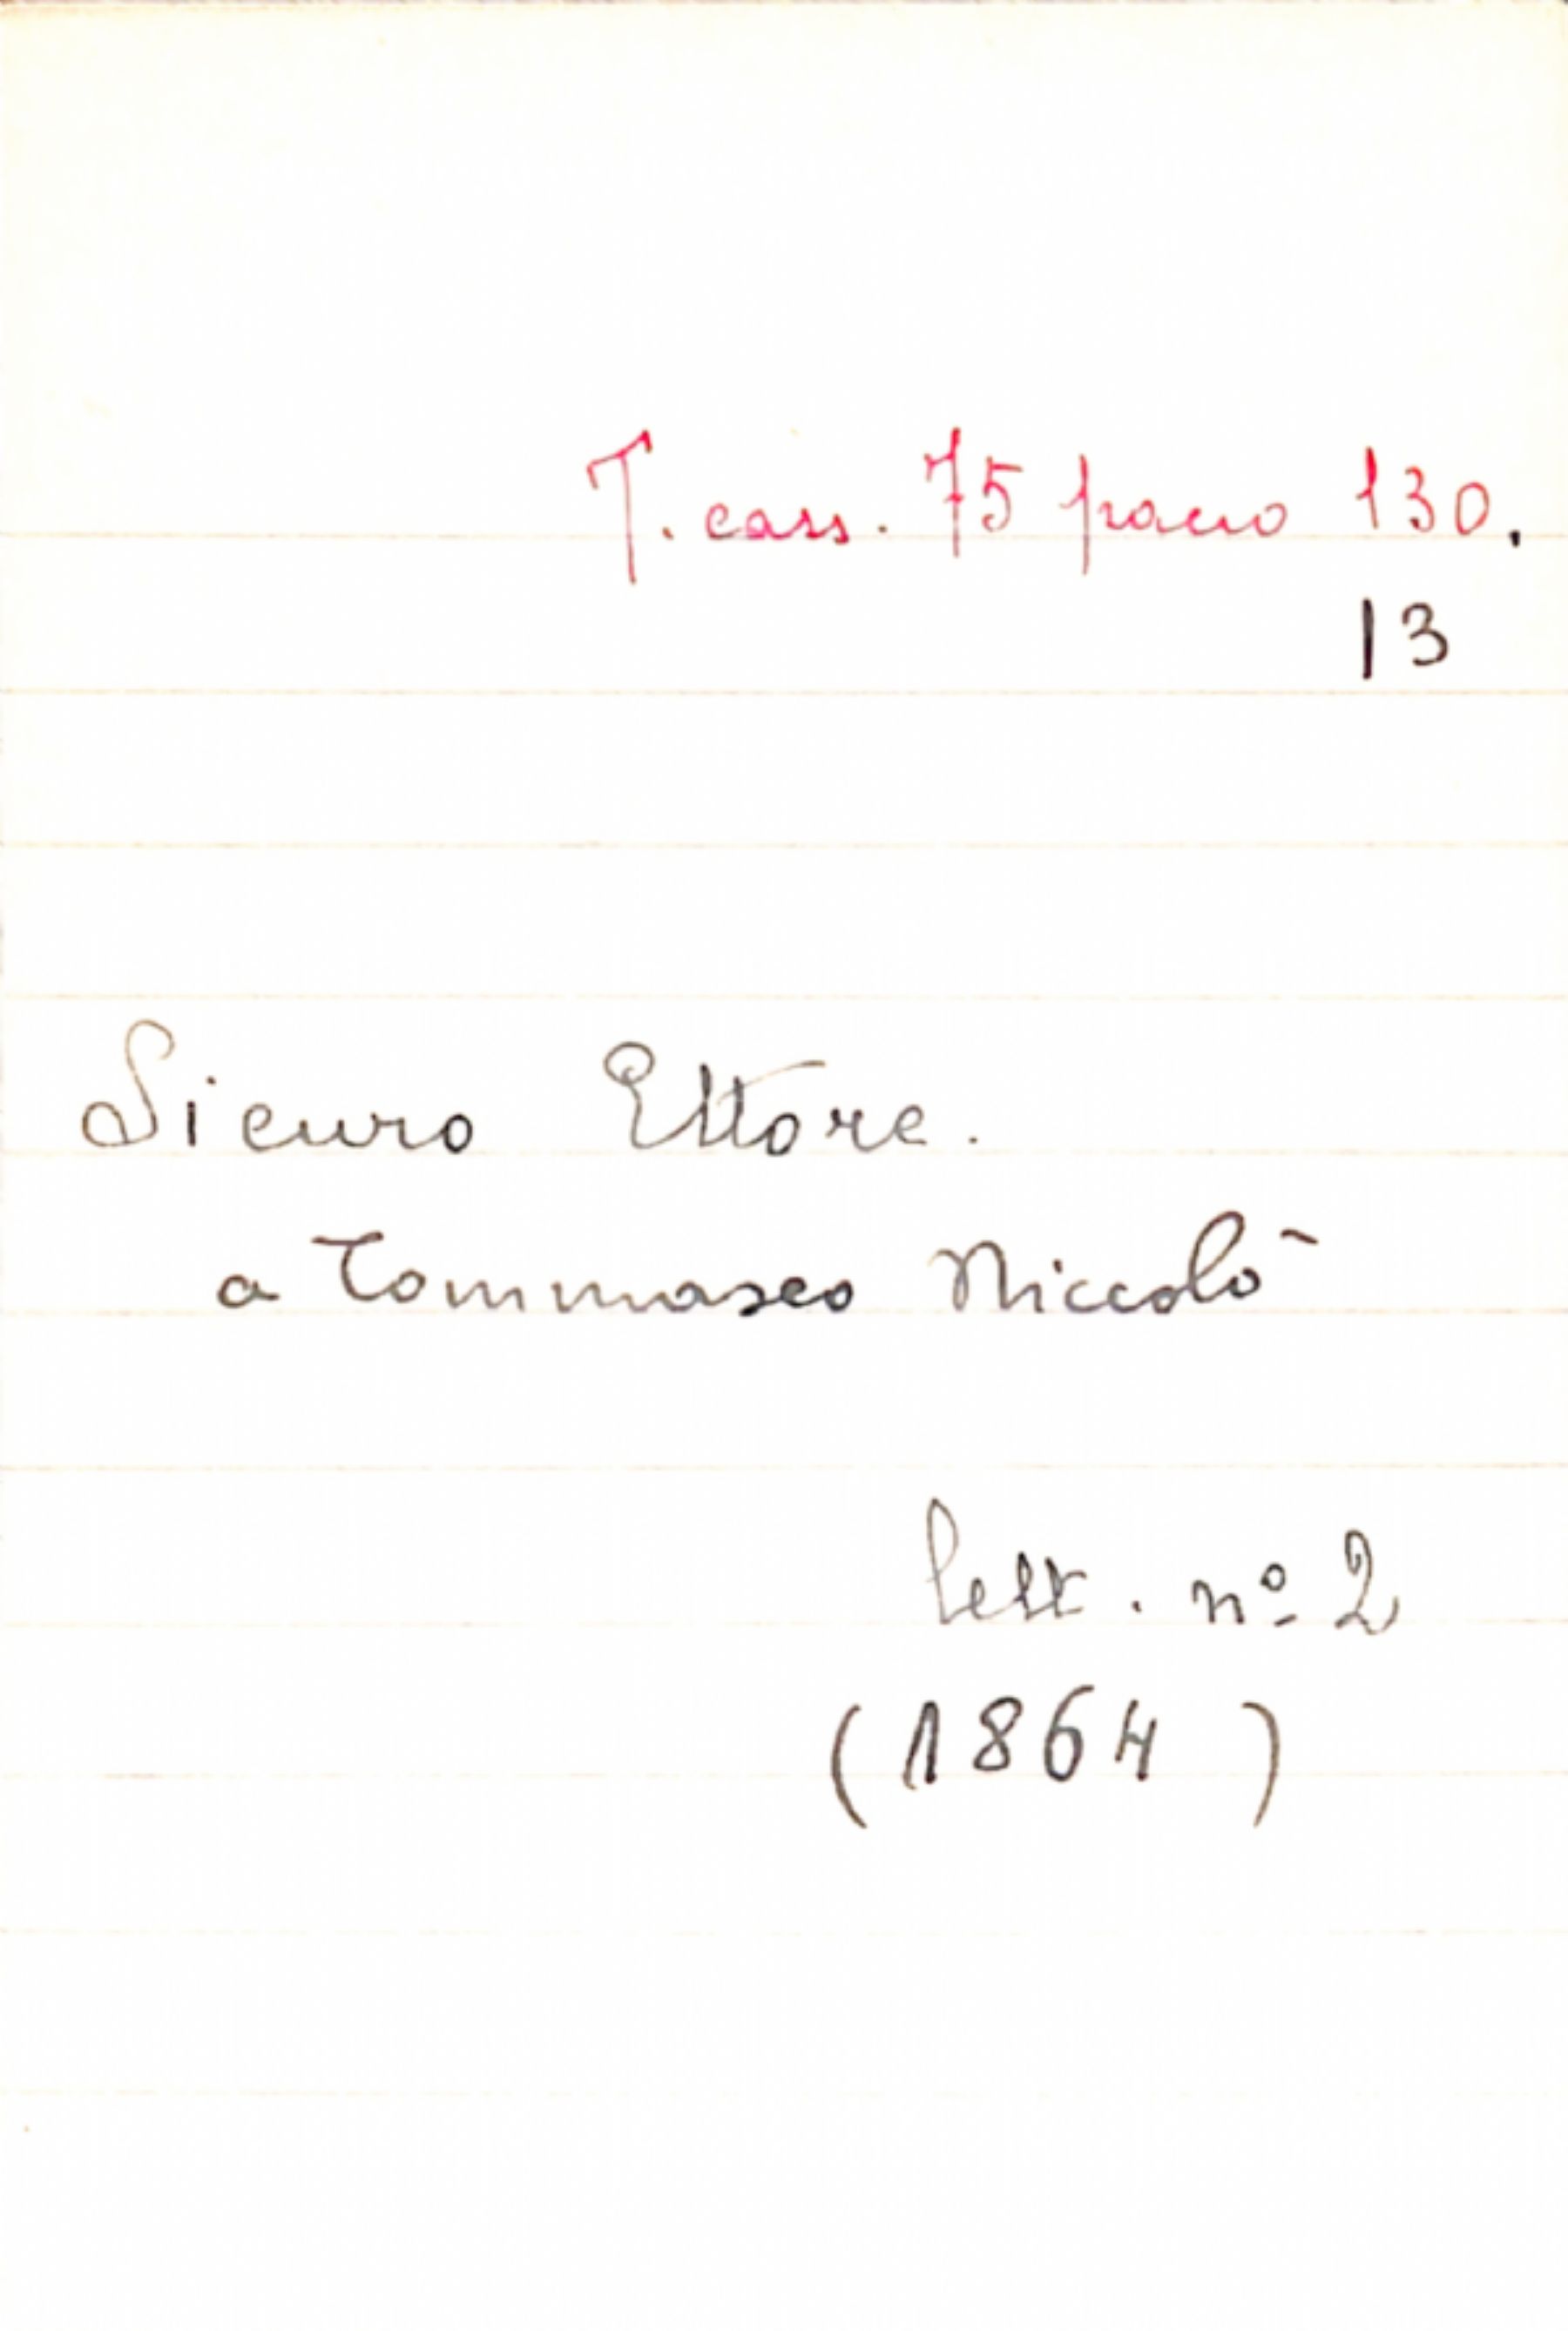 T. cass. 75 pacco 130.
13
Sicuro Ettore.
a Tommaseo Niccolò
lett. nº 2
(1864)